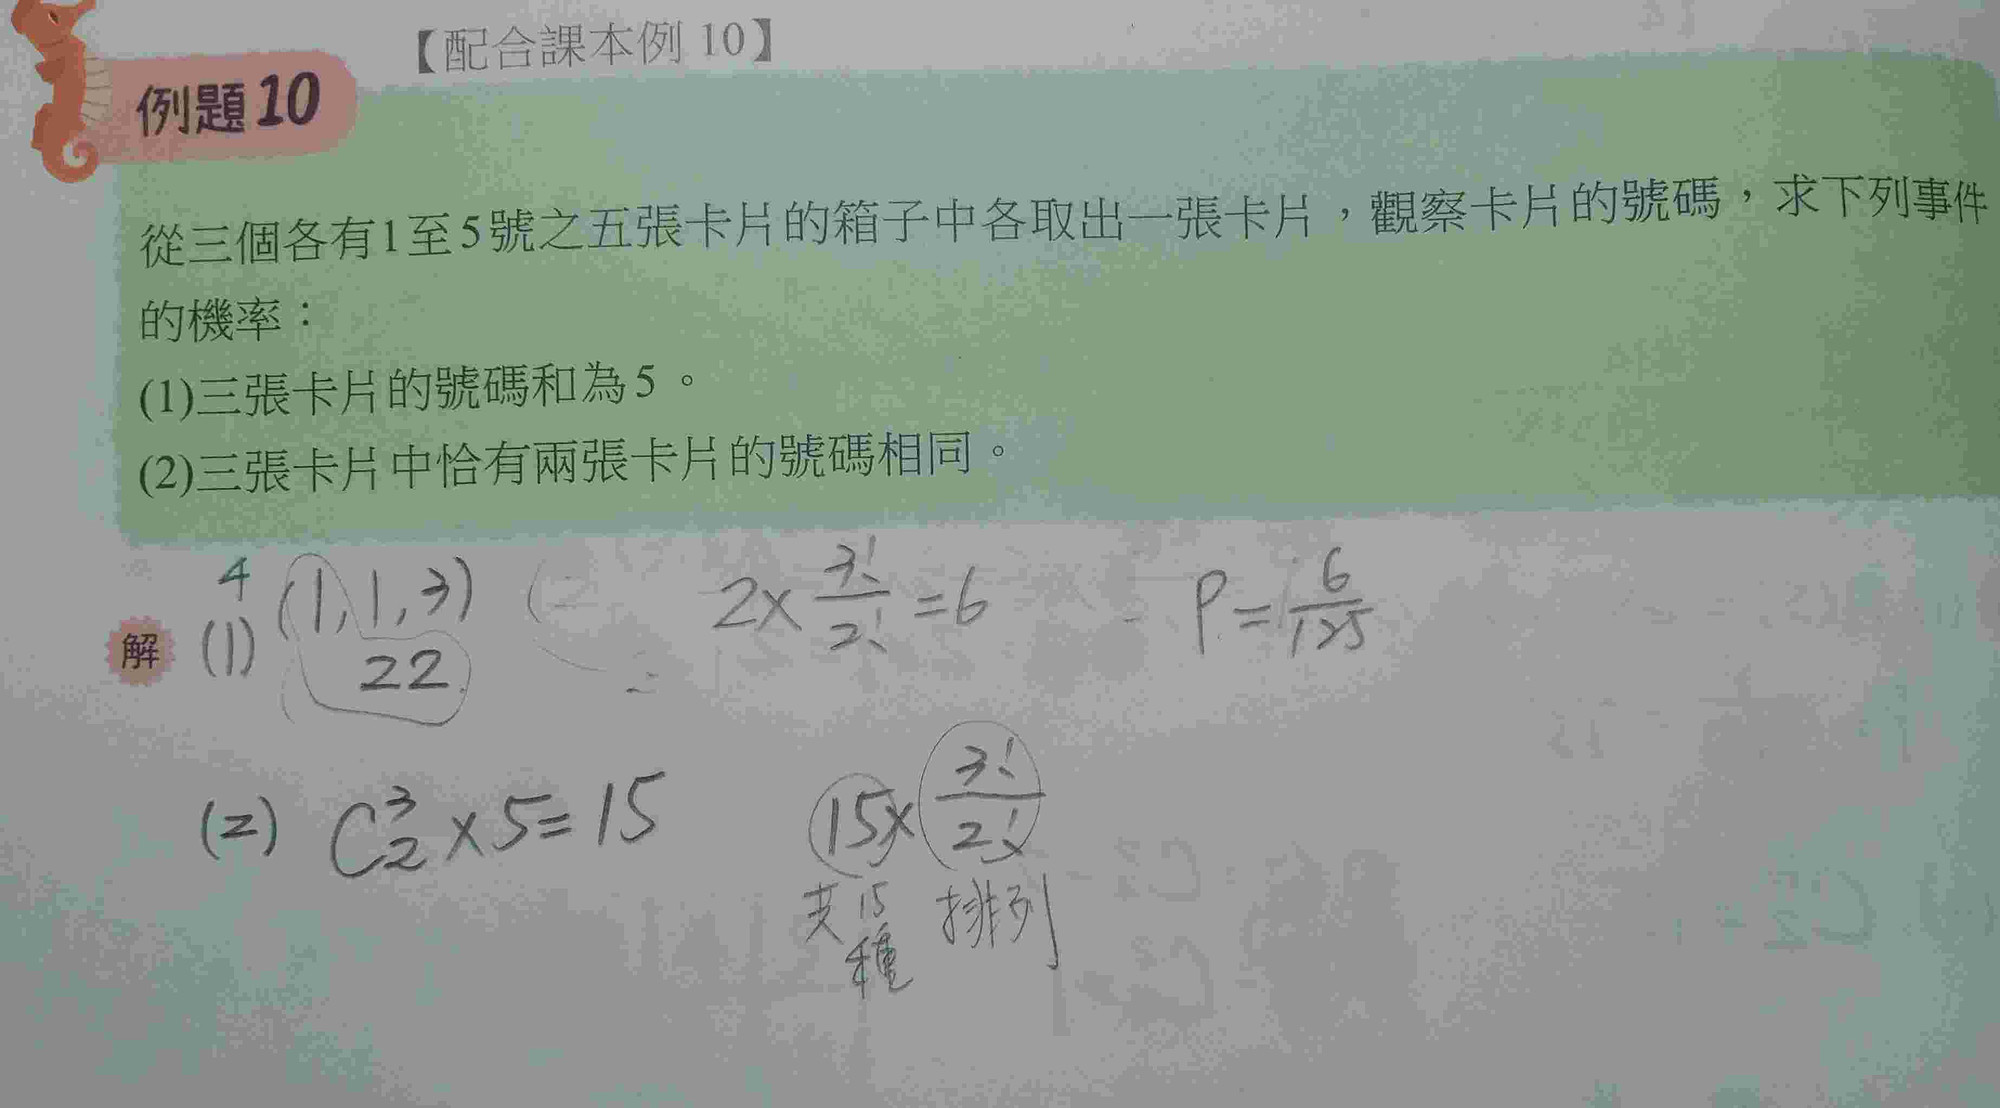 【配合課本例 10】
例題10
從三個各有1至5號之五張卡片的箱子中各取出一張卡片，觀察卡片的號碼，求下列事件
的機率：
(1)三張卡片的號碼和為5。
(2)三張卡片中恰有兩張卡片的號碼相同。
4
解 (1) (1,1,3) 2×3!/2!=6 P=6/125
22
(2) C³₂×5=15 15×3!/2!
共15種 排列